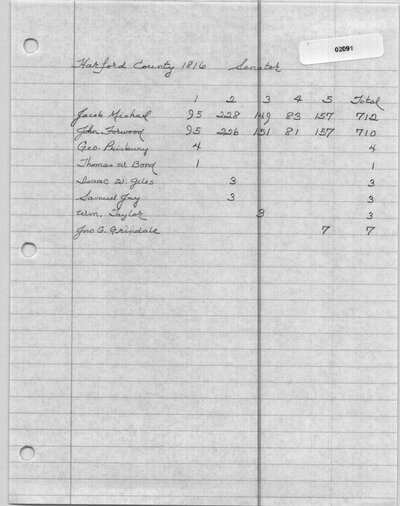 02091
Harford County 1816 Senator
1 2 3 4 5 Total
Jacob Michael 95 228 149 83 157 712
John Forwood 95 226 151 81 157 710
Geo. Prisbury 4 4
Thomas W. Bond 1 1
Isaac W. Giles 3 3
Samuel Jay 3 3
Wm. Taylor 3 3
Jno G. Grindale 7 7